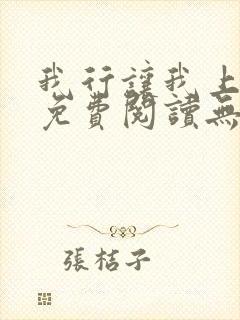 我行讓我上
免費閱讀無
張桔子